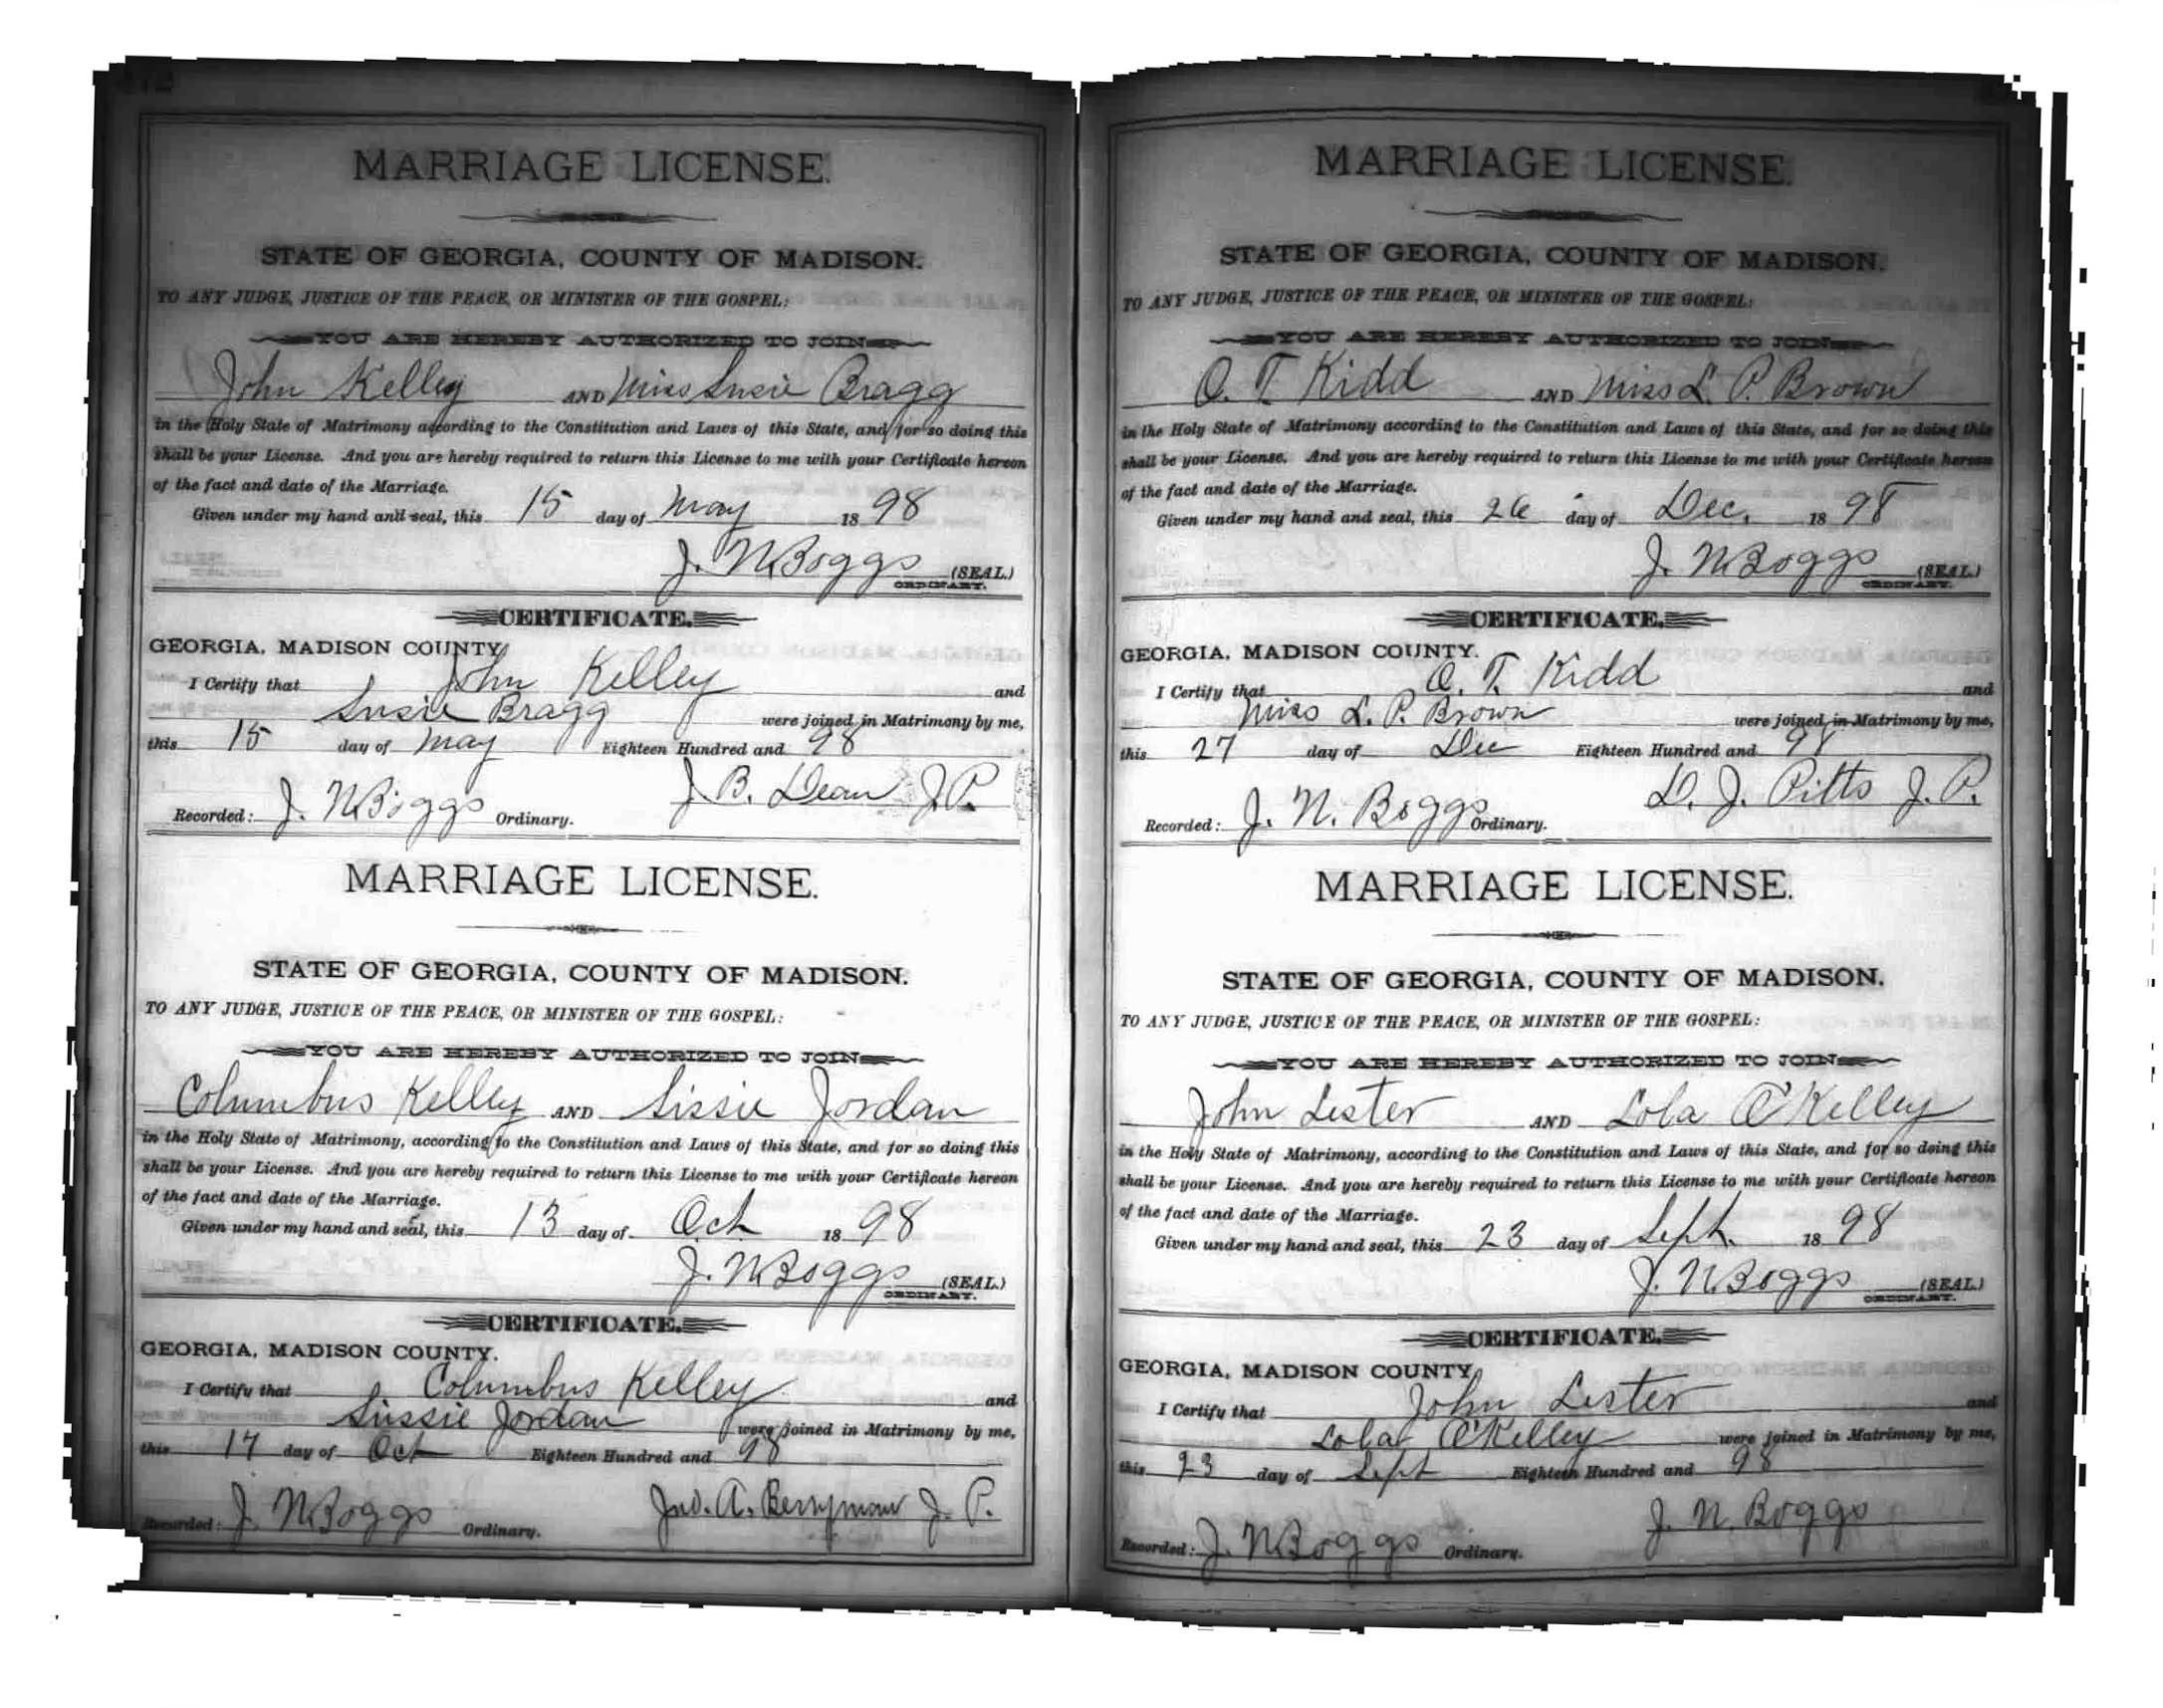 MARRIAGE LICENSE.
STATE OF GEORGIA, COUNTY OF MADISON.
TO ANY JUDGE, JUSTICE OF THE PEACE, OR MINISTER OF THE GOSPEL:
YOU ARE HEREBY AUTHORIZED TO JOIN
John Kelley AND Miss Susie Bragg
in the Holy State of Matrimony according to the Constitution and Laws of this State, and for so doing this
shall be your License. And you are hereby required to return this License to me with your Certificate hereon
of the fact and date of the Marriage.
Given under my hand and seal, this 15 day of May 1898
J. N. Boggs (SEAL.)
ORDINARY.
CERTIFICATE.
GEORGIA, MADISON COUNTY.
I Certify that John Kelley and
Susie Bragg were joined in Matrimony by me,
this 15 day of May Eighteen Hundred and 98
J. B. Dean J.P.
Recorded: J. N. Boggs Ordinary.
MARRIAGE LICENSE.
STATE OF GEORGIA, COUNTY OF MADISON.
TO ANY JUDGE, JUSTICE OF THE PEACE, OR MINISTER OF THE GOSPEL:
YOU ARE HEREBY AUTHORIZED TO JOIN
Columbus Kelley AND Sissie Jordan
in the Holy State of Matrimony, according to the Constitution and Laws of this State, and for so doing this
shall be your License. And you are hereby required to return this License to me with your Certificate hereon
of the fact and date of the Marriage.
Given under my hand and seal, this 13 day of Oct 1898
J. N. Boggs (SEAL.)
ORDINARY.
CERTIFICATE.
GEORGIA, MADISON COUNTY.
I Certify that Columbus Kelley and
Sissie Jordan were joined in Matrimony by me,
this 17 day of Oct Eighteen Hundred and 98
Jno. A. Berryman J. P.
Recorded: J. N. Boggs Ordinary.
MARRIAGE LICENSE.
STATE OF GEORGIA, COUNTY OF MADISON.
TO ANY JUDGE, JUSTICE OF THE PEACE, OR MINISTER OF THE GOSPEL:
YOU ARE HEREBY AUTHORIZED TO JOIN
O. T. Kidd AND Miss L. P. Brown
in the Holy State of Matrimony according to the Constitution and Laws of this State, and for so doing this
shall be your License. And you are hereby required to return this License to me with your Certificate hereon
of the fact and date of the Marriage.
Given under my hand and seal, this 26 day of Dec. 1898
J. N. Boggs (SEAL.)
ORDINARY.
CERTIFICATE.
GEORGIA, MADISON COUNTY.
I Certify that O. T. Kidd and
Miss L. P. Brown were joined in Matrimony by me,
this 27 day of Dec Eighteen Hundred and 98
D. J. Pitts J. P.
Recorded: J. N. Boggs Ordinary.
MARRIAGE LICENSE.
STATE OF GEORGIA, COUNTY OF MADISON.
TO ANY JUDGE, JUSTICE OF THE PEACE, OR MINISTER OF THE GOSPEL:
YOU ARE HEREBY AUTHORIZED TO JOIN
John Lester AND Lola O'Kelley
in the Holy State of Matrimony, according to the Constitution and Laws of this State, and for so doing this
shall be your License. And you are hereby required to return this License to me with your Certificate hereon
of the fact and date of the Marriage.
Given under my hand and seal, this 23 day of Sept. 1898
J. N. Boggs (SEAL.)
ORDINARY.
CERTIFICATE.
GEORGIA, MADISON COUNTY.
I Certify that John Lester and
Lola O'Kelley were joined in Matrimony by me,
this 23 day of Sept Eighteen Hundred and 98
J. N. Boggs
Recorded: J. N. Boggs Ordinary.